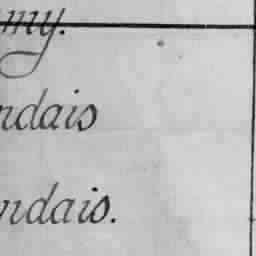 my.
ndais
ndais.